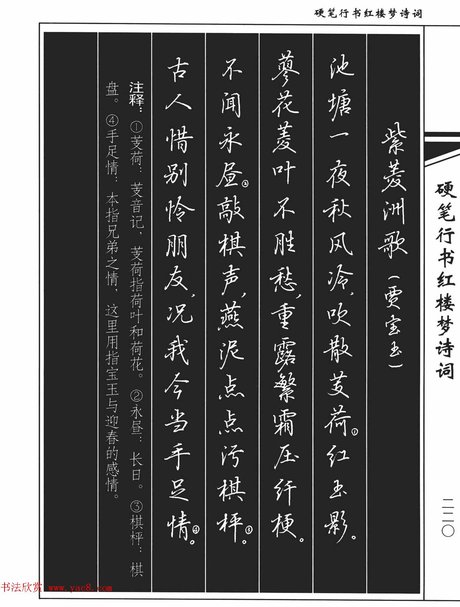 硬笔行书红楼梦诗词
硬笔行书红楼梦诗词
二二〇
紫菱洲歌（贾宝玉）
池塘一夜秋风冷，吹散芰荷①红玉影。
蓼花菱叶不胜愁，重露繁霜压纤梗。
不闻永昼②敲棋声，燕泥点点污棋枰③。
古人惜别怜朋友，况我今当手足情④。
注释：①芰荷：芰音记、芰荷指荷叶和荷花。②永昼：长日。③棋枰：棋
盘。④手足情：本指兄弟之情，这里用指宝玉与迎春的感情。
书法欣赏 www.yac8.com